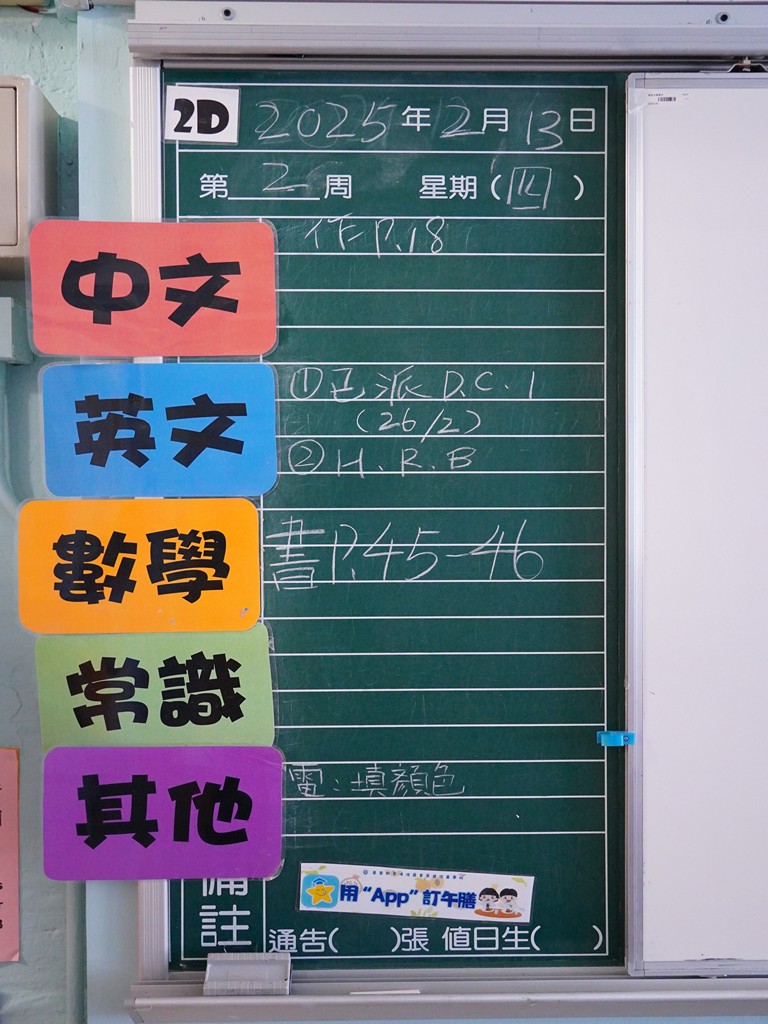 2D 2025年2月13日
第2周 星期(四)
中文 作P.18
英文 ①已派D.C.1
(26/2)
②H.R.B
數學 書P.45-46
常識
其他 電:填顏色
用“App”訂午膳
備註 通告( )張 值日生( )